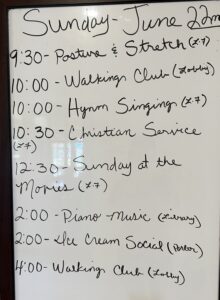 Sunday- June 22nd
9:30- Posture & Stretch (x7)
10:00- Walking Club (Lobby)
10:00- Hymn Singing (x7)
10:30- Christian Service
(x7)
12:30- Sunday at the
Movies (x7)
2:00- Piano Music (Library)
2:00- Ice Cream Social (Parlor)
4:00- Walking Club (Lobby)